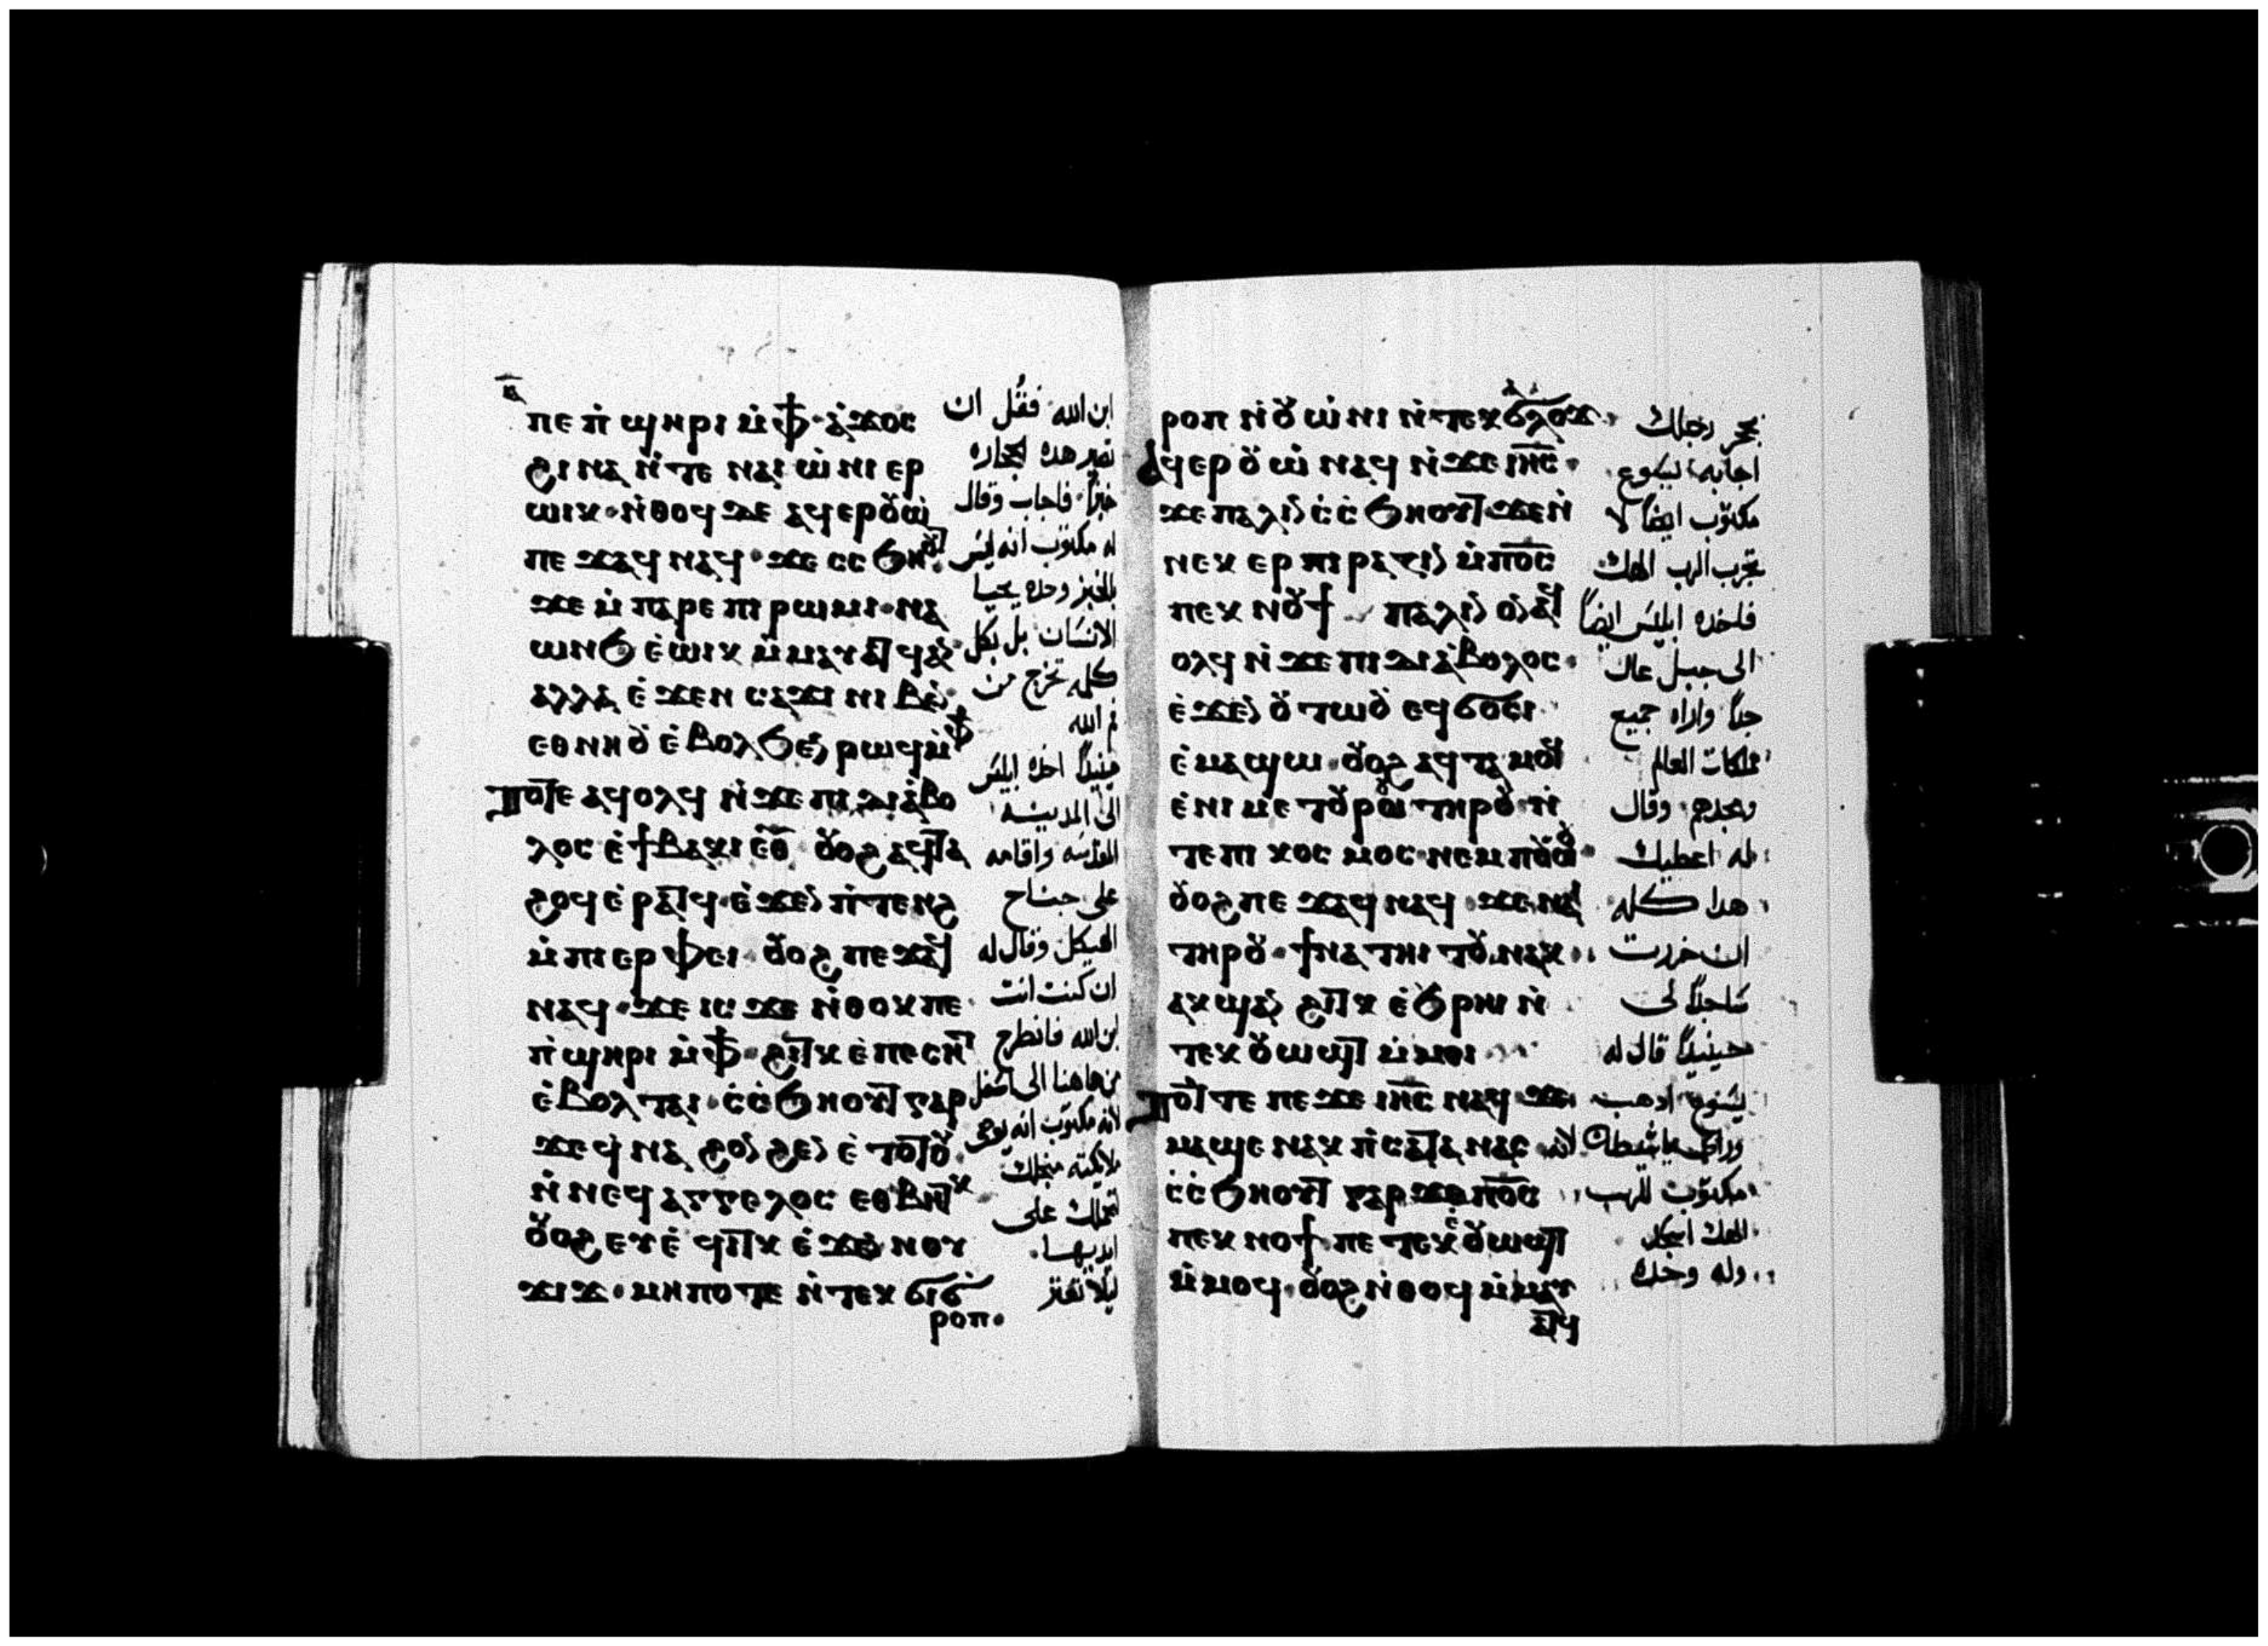 ⲡⲉ ⲡ̀ϣⲏⲣⲓ ⲙ̀ⲫϯ · ⲁ̀ϫⲟⲥ
ϩⲓⲛⲁ ⲛ̀ⲧⲉ ⲛⲁⲓ ⲱ̀ⲛⲓ ⲉⲣ
ⲱⲓⲕ · ⲛ̀ⲑⲟϥ ⲇⲉ ⲁϥⲉⲣⲟⲩⲱ̀
ⲡⲉϫⲁϥ ⲛⲁϥ · ϫⲉ ⲥⲥϧⲏⲟⲩⲧ
ϫⲉ ⲙ̀ⲡⲁⲣⲉ ⲡⲓⲣⲱⲙⲓ · ⲛⲁ
ⲱⲛϧ ⲉ̀ⲱⲓⲕ ⲙ̀ⲙⲁⲩⲁⲧϥ ⲁⲛ
ⲁⲗⲗⲁ ⲉ̀ϫⲉⲛ ⲥⲁϫⲓ ⲛⲓⲃⲉⲛ
ⲉⲑⲛⲏⲟⲩ ⲉ̀ⲃⲟⲗϧⲉⲛ ⲣⲱϥ ⲙ̀ⲫϯ
ⲧⲟⲧⲉ ⲁϥⲟⲗϥ ⲛ̀ϫⲉ ⲡⲓⲇⲓⲁ̀ⲃⲟ
ⲗⲟⲥ ⲉ̀ϯⲃⲁⲕⲓ ⲉ̅ⲑ̅ ⲟⲩⲟϩ ⲁϥⲧⲁ
ϩⲟϥ ⲉ̀ⲣⲁⲧϥ · ⲉ̀ϫⲉⲛ ⲡ̀ⲧⲉⲛϩ
ⲙ̀ⲡⲓⲉⲣⲫⲉⲓ · ⲟⲩⲟϩ ⲡⲉϫⲁϥ
ⲛⲁϥ · ϫⲉ ⲓⲥϫⲉ ⲛ̀ⲑⲟⲕ ⲡⲉ
ⲡ̀ϣⲏⲣⲓ ⲙ̀ⲫϯ · ϩⲓⲧⲕ ⲉ̀ⲡⲉⲥⲏⲧ
ⲉ̀ⲃⲟⲗ ⲧⲁⲓ · ⲥ̀ⲥ̀ϧⲏⲟⲩⲧ ⲅⲁⲣ
ϫⲉ ϥ̀ⲛⲁϩⲟⲛϩⲉⲛ ⲉ̀ⲧⲟⲧⲟⲩ
ⲛ̀ⲛⲉϥⲁⲅⲅⲉⲗⲟⲥ ⲉⲑⲃⲏⲧⲕ
ⲟⲩⲟϩ ⲉⲩⲉ̀ϥⲓⲧⲕ ⲉ̀ϫⲉⲛ ⲛⲟⲩ
ϫⲓϫ · ⲙⲏⲡⲟⲧⲉ ⲛ̀ⲧⲉⲕϭⲓϭ
ⲣⲟⲡ ·
ابن الله فقل ان
تصير هده الحجاره
خبزاً فاجاب وقال
له مكتوب انه ليس
بالخبز وحده يحيا
الانسان بل بكل
كلمه تخرج من
فم الله
حينيداً اخده ابليس
الى المدينه
المقدسه واقامه
على جناح
الهيكل وقال له
ان كنت انت
ابن الله فانطرح
من هاهنا الى اسفل
لانه مكتوب انه يوصى
ملايكته منجلك
لتحملك على
ايديها
ليلا تعثر
ⲣⲟⲡ ⲛ̀ⲟⲩⲱ̀ⲛⲓ ⲛ̀ⲧⲉⲕϭⲁⲗⲟϫ ·
ⲁϥⲉⲣⲟⲩⲱ̀ ⲛⲁϥ ⲛ̀ϫⲉ ⲓⲏ̅ⲥ̅ ·
ϫⲉ ⲡⲁⲗⲓⲛ ⲥ̀ⲥ̀ϧⲏⲟⲩⲧ ϫⲉ ⲛ̀
ⲛⲉⲕ ⲉⲣⲡⲓⲣⲁⲍⲓⲛ ⲙ̀ⲡⲟ̅ⲥ̅
ⲡⲉⲕⲛⲟⲩϯ ⲡⲁⲗⲓⲛ ⲟⲛ ⲁϥ
ⲟⲗϥ ⲛ̀ϫⲉ ⲡⲓⲇⲓⲁ̀ⲃⲟⲗⲟⲥ ·
ⲉ̀ϫⲉⲛ ⲟⲩⲧⲱⲟⲩ ⲉϥϭⲟⲥⲓ
ⲉ̀ⲙⲁϣⲱ · ⲟⲩⲟϩ ⲁϥⲧⲁⲙⲟϥ
ⲉ̀ⲛⲓⲙⲉⲧⲟⲩⲣⲱⲟⲩ ⲧⲏⲣⲟⲩ ⲛ̀
ⲧⲉ ⲡⲓⲕⲟⲥⲙⲟⲥ ⲛⲉⲙ ⲡⲟⲩⲱ̀ⲟⲩ
ⲟⲩⲟϩ ⲡⲉϫⲁϥ ⲛⲁϥ ϫⲉ ⲛⲁⲓ
ⲧⲏⲣⲟⲩ · ϯⲛⲁⲧⲏⲓⲧⲟⲩ ⲛⲁⲕ ·
ⲁⲕϣⲁⲛ ϩⲓⲧⲕ ⲉ̀ϧⲣⲏⲓ ⲛ̀
ⲧⲉⲕⲟⲩⲱϣⲧ ⲙ̀ⲙⲟⲓ
ⲧⲟⲧⲉ ⲡⲉϫⲉ ⲓⲏ̅ⲥ̅ ⲛⲁϥ ϫⲉ
ⲙⲁϣⲉ ⲛⲁⲕ ⲡ̀ⲥⲁⲧⲁⲛⲁⲥ
ⲥ̀ⲥ̀ϧⲏⲟⲩⲧ ⲅⲁⲣ ϫⲉ ⲡⲟ̅ⲥ̅
ⲡⲉⲕⲛⲟⲩϯ ⲡⲉⲧⲉⲕⲉ̀ⲟⲩⲱϣⲧ
ⲙ̀ⲙⲟϥ · ⲟⲩⲟϩ ⲛ̀ⲑⲟϥ ⲙ̀ⲙⲁⲩ
ⲁⲧϥ
بحجر رجلك
اجابه يسوع
مكتوب ايضاً لا
تجرب الرب الهك
فاخده ابليس ايضاً
الى جبل عال
جداً واراه جميع
ممالك العالم
ومجدهم وقال
له اعطيك
هدا كله
ان خررت
ساجداً لى
حينيداً قال له
يسوع ادهب
وراى يا شيطان لانه
مكتوب للرب
الهك اسجد
وله وحده